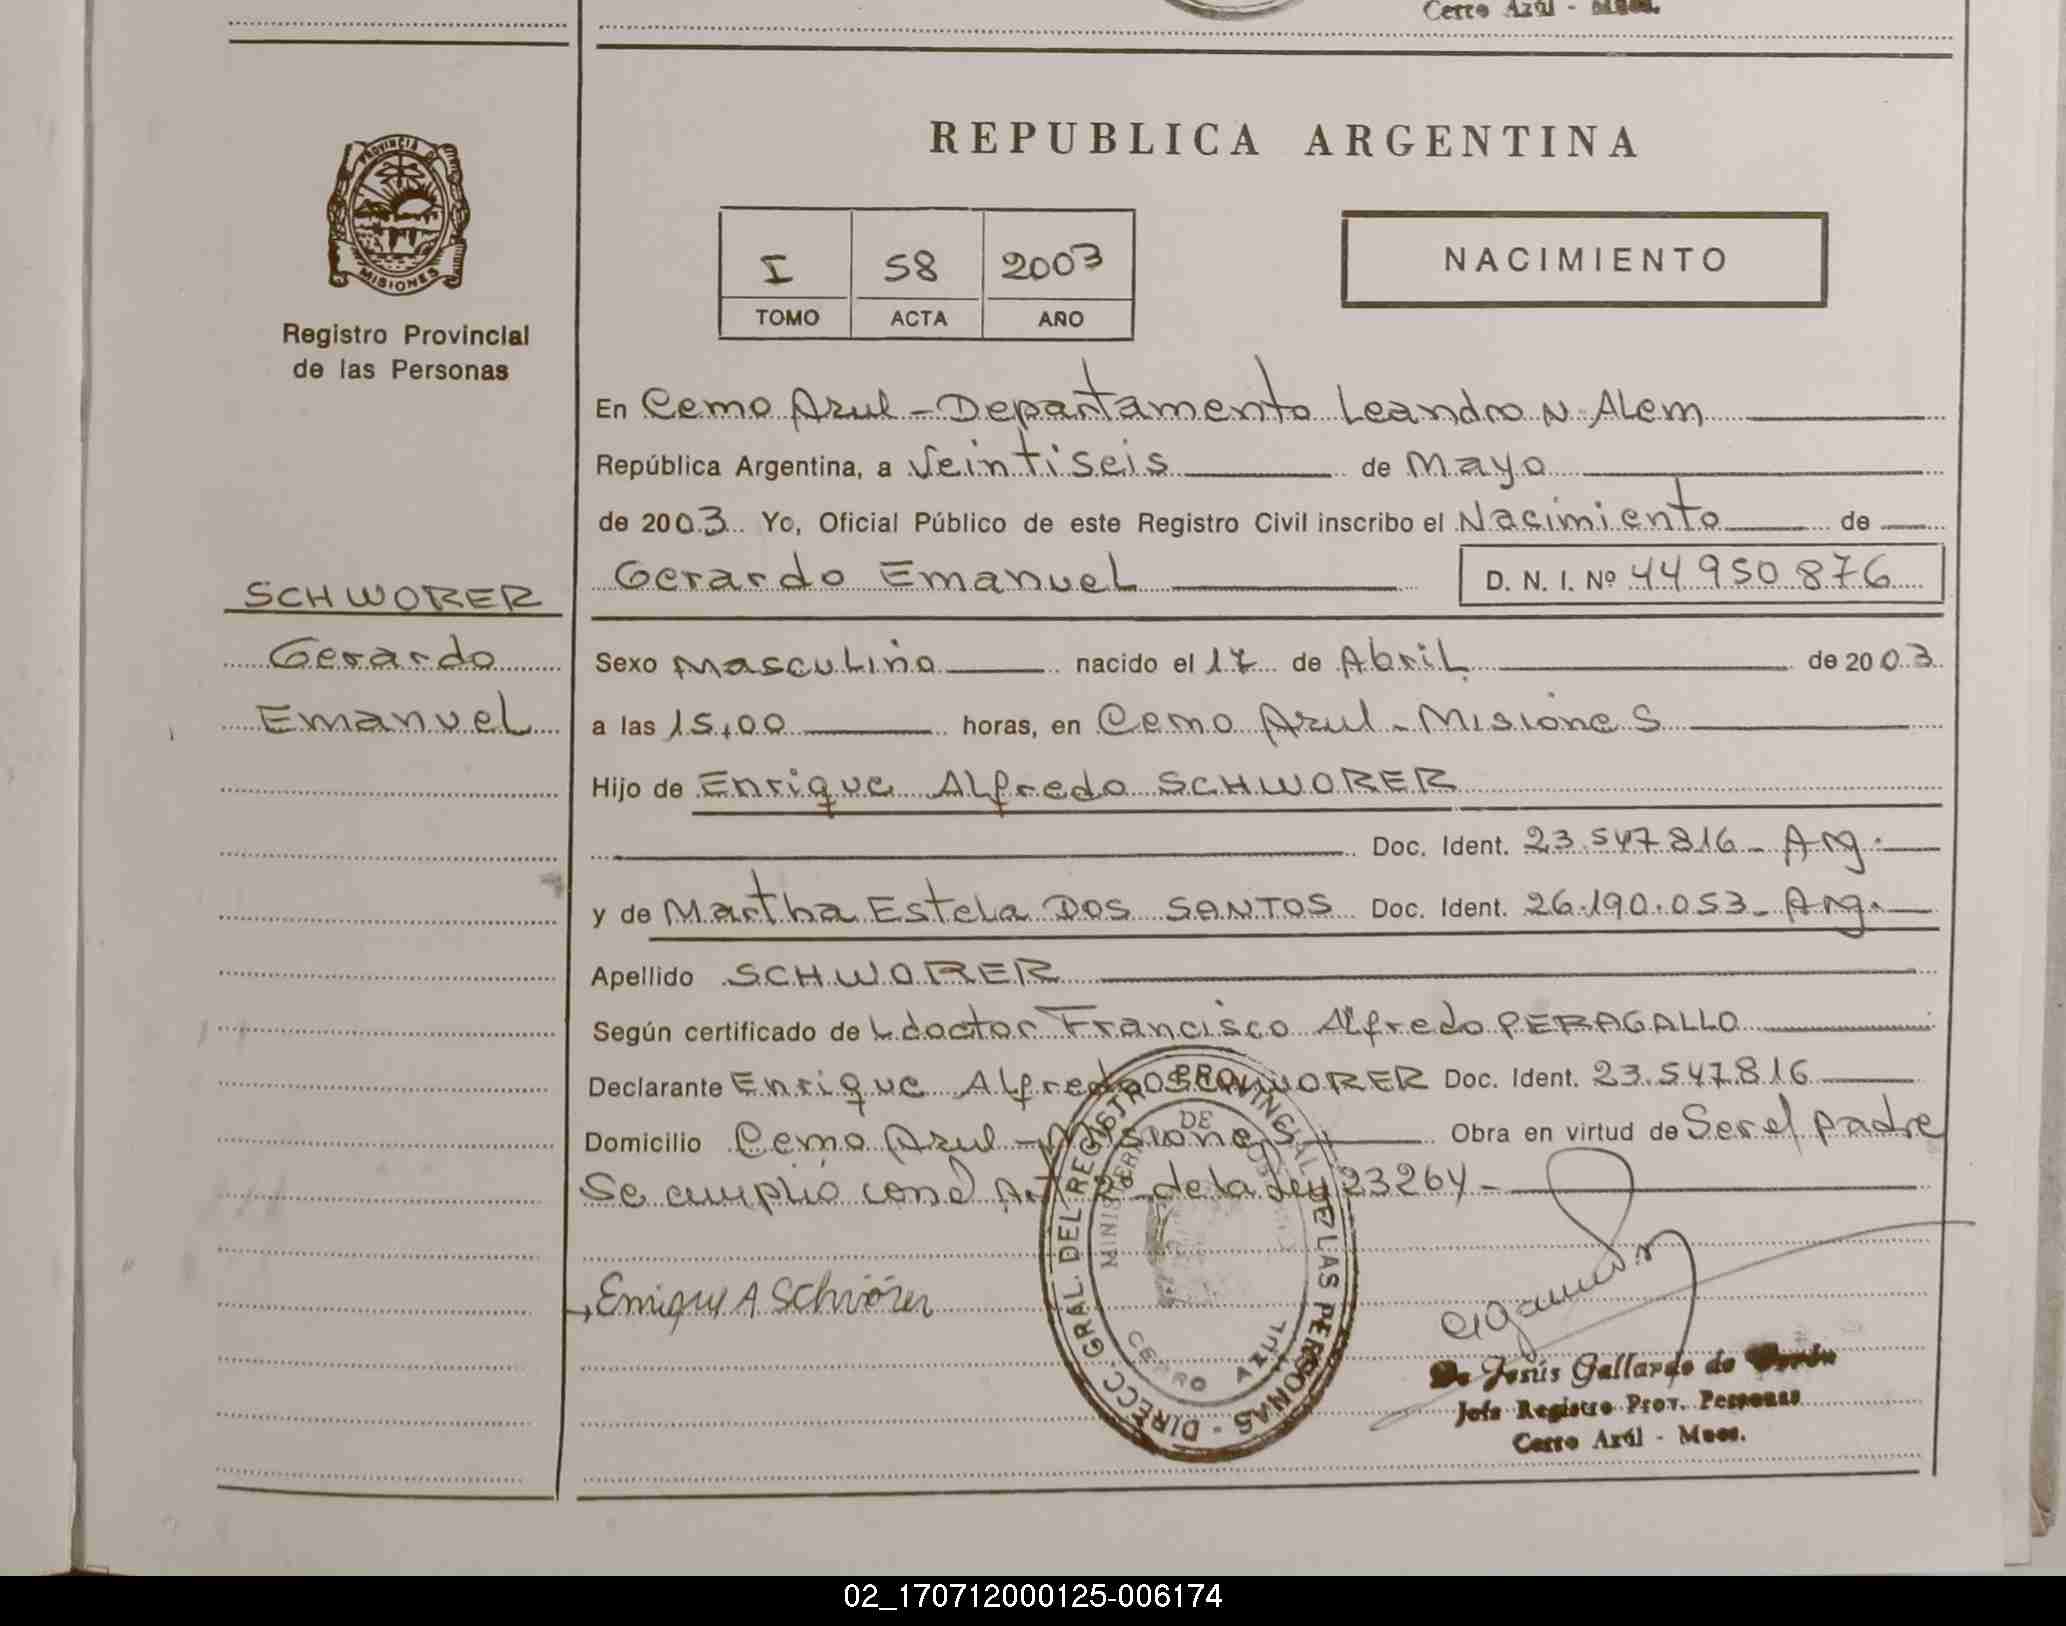 Cerro Azúl - Mnes.
PROVINCIA DE
MISIONES
Registro Provincial
de las Personas
SCHWORER
Gerardo
Emanuel
REPUBLICA ARGENTINA
I 58 2003
TOMO ACTA AÑO
NACIMIENTO
En Cerro Azul - Departamento Leandro N. Alem
República Argentina, a Veintiseis de Mayo
de 2003 Yo, Oficial Público de este Registro Civil inscribo el Nacimiento de
Gerardo Emanuel D. N. I. Nº 44950876
Sexo Masculino nacido el 17 de Abril de 2003
a las 15,00 horas, en Cerro Azul - Misiones
Hijo de Enrique Alfredo SCHWORER
Doc. Ident. 23.547.816 - Arg.
y de Martha Estela DOS SANTOS Doc. Ident. 26.190.053 - Arg.
Apellido SCHWORER
Según certificado de L doctor Francisco Alfredo PERAGALLO
Declarante Enrique Alfredo SCHWORER Doc. Ident. 23.547.816
Domicilio Cerro Azul - Misiones Obra en virtud de Ser el padre
Se cumplió con el Art 2º de la Ley 23264 -
Enrique A Schwörer
DIRECC. GRAL. DEL REGISTRO PROVINCIAL DE LAS PERSONAS -
DE
CERRO AZUL
de Jesús Gallardo de
Jefe Registro Prov. Personas
Cerro Azúl - Mnes.
02_170712000125-006174